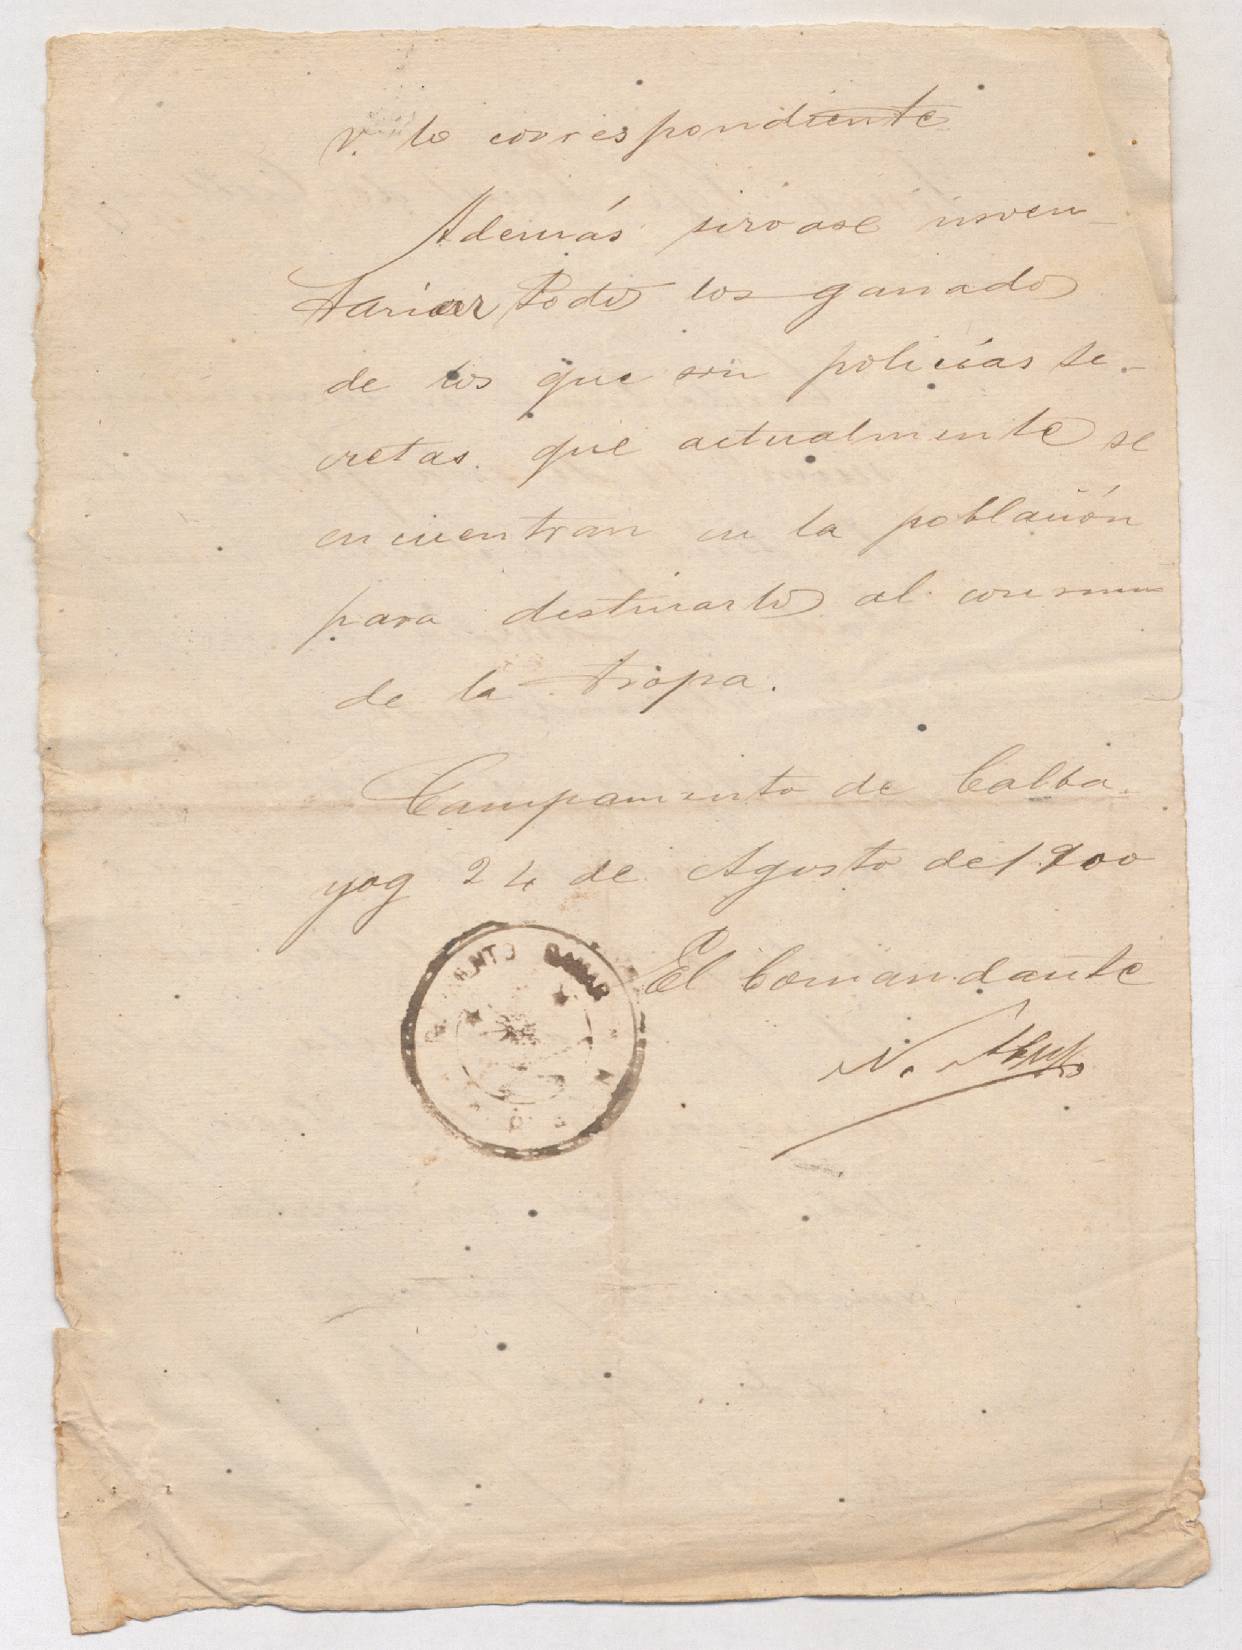 v. lo correspondiente
Además sirvase inven-
tariar todos los ganados
de los que son policías se-
cretas. que actualmente se
encuentran en la población
para destinarlos al consumo
de la tropa.
Campamento de Calba-
yog 24 de Agosto de 1900
El Comandante
N.